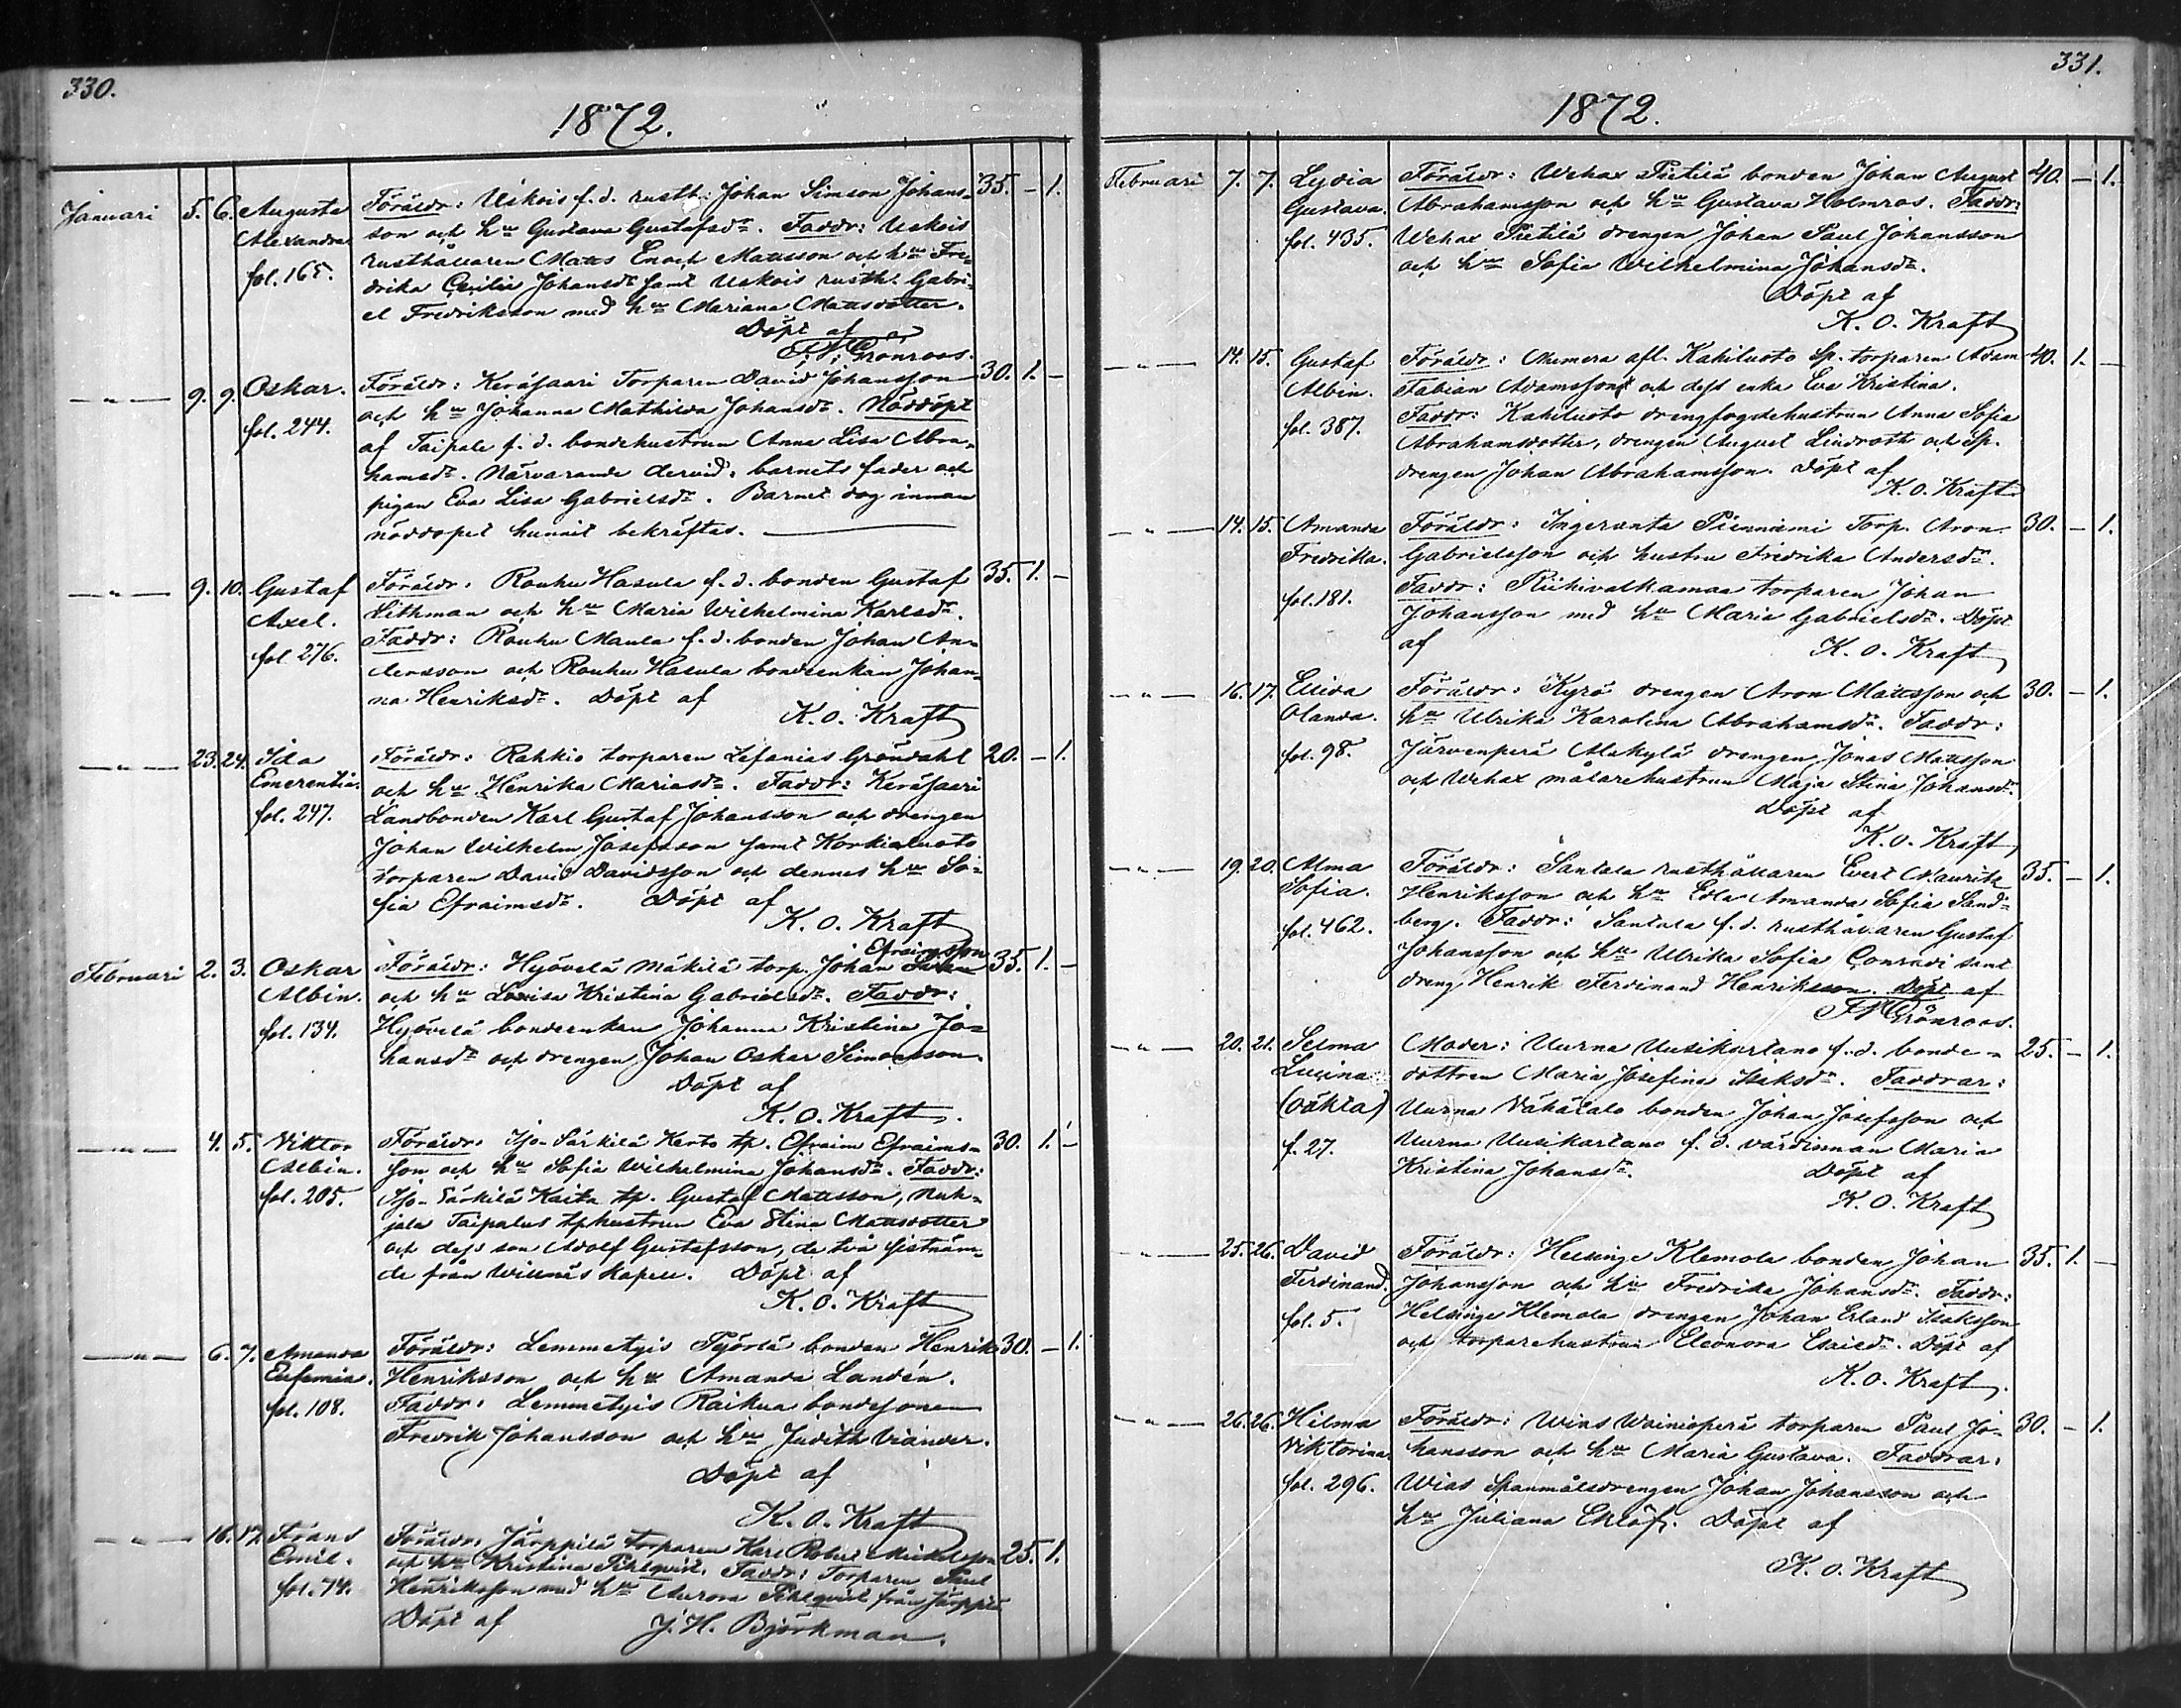 330.
1872.
Januari 5. 6. Augusta Alexandra fol. 165.
Föräldr: Uskois f. d. rusth: Johan Simson Johans- 35. – 1.
son och hu Gustava Gustafsdr. Faddr: Uskois
rusthållaren Matts Enoch Mattsson och hu Fre-
drika Cecilia Johansdr samt Uskois rusth. Gabri-
el Fredriksson med hu Mariana Mattsdotter.
Döpt af
Grönroos.
—„— 9. 9. Oskar. fol. 244.
Föräldr: Keräsaari Torparen David Johansson 30. 1. –
och hu Johanna Mathilda Johansdr. Nöddöpt
af Taipale f. d. bondehustrun Anna Lisa Abra-
hamsdr. Närvarande dervid: barnets fader och
pigan Eva Lisa Gabrielsdr. Barnet dog innan
nöddopet hunnit bekräftas.
—„— 9. 10. Gustaf Axel. fol. 276.
Föräldr: Rouhu Hasula f. d. bonden Gustaf 35. 1. –
Lithman och hu Maria Wilhelmina Karlsdr.
Faddr: Rouhu Maula f. d. bonden Johan An-
dersson och Rouhu Hasula bondeenkan Johan-
na Henriksdr. Döpt af
K. O. Kraft
—„— 23. 24. Ida Emerentia. fol. 247.
Föräldr: Rahkio torparen Zefanias Gröndahl 20. – 1.
och hu Henrika Mariasdr. Faddr: Keräsaari
Landbonden Karl Gustaf Johansson och drengen
Johan Wilhelm Josefsson samt Korkialuoto
torparen David Davidsson och dennes hu So-
fia Efraimsdr. Döpt af
K. O. Kraft
Efraimsson
Februari 2. 3. Oskar Albin. fol. 134.
Föräldr: Hyövelä Mäkilä torp. Johan 35. 1. –
och hu Lovisa Kristina Gabrielsdr. Faddr:
Hyövelä bondeenkan Johanna Kristina Jo-
hansdr och drengen Johan Oskar Simonsson.
Döpt af
K. O. Kraft.
—„— 4. 5. Viktor Albin. fol. 205.
Föräldr: Iso-Särkilä Kerto tp. Efraim Efraims- 30. 1. –
son och hu Sofia Wilhelmina Johansdr. Faddr:
Iso-Särkilä Kaita tp. Gustaf Mattsson, Nuh-
jala Taipalus tphustrun Eva Stina Mattsdotter
och dess son Adolf Gustafsson, de två sistnäm-
de från Willnäs Kapell. Döpt af
K. O. Kraft
—„— 6. 7. Amanda Eufemia. fol. 108.
Föräldr: Lemmetyis Työrlä bonden Henrik 30. – 1.
Henriksson och hu Amanda Landén.
Faddr: Lemmetyis Raikua bondesonen
Fredrik Johansson och hu Judith Viander.
Döpt af
K. O. Kraft
—„— 16. 17. Frans Emil. fol. 74.
Föräldr: Järppilä torparen Karl Robert Mickelsson 25. 1.
och hu Kristina Pihlqvist. Faddr: Torparen Paul
Henriksson med hu Aurora Pihlqvist från Järppilä
Döpt af J. H. Björkman.
331.
1872.
Februari 7. 7. Lydia Gustava. fol. 435.
Föräldr: Wehax Pietilä bonden Johan August 40. – 1.
Abrahamsson och hu Gustava Holmros. Faddr:
Wehax Pietilä drengen Johan Paul Johansson
och hu Sofia Wilhelmina Johansdr.
Döpt af
K. O. Kraft
—„— 14. 15. Gustaf Albin. fol. 387.
Föräldr: Numera afl. Kahiluoto Sp. torparen Adam 40. 1. –
Fabian Adamsson och dess enka Eva Kristina.
Faddr: Kahiluoto drengfogdehustrun Anna Sofia
Abrahamsdotter, drengen August Lindroth och Sp.
drengen Johan Abrahamsson. Döpt af
K. O. Kraft
—„— 14. 15. Amanda Fredrika. fol. 181.
Föräldr: Ingeranta Pienniemi Torp. Aron 30. – 1.
Gabrielsson och hustru Fredrika Andersdr.
Faddr: Riihivalkamaa torparen Johan
Johansson med hu Maria Gabrielsdr. Döpt
af K. O. Kraft
—„— 16. 17. Elida Olanda. fol. 98.
Föräldr: Kyrö drengen Aron Mattsson och 30. – 1.
hu Ulrika Karolina Abrahamsdr. Faddr:
Järvenperä Alakylä drengen Jonas Mattsson
och Wehax målarehustrun Maja Stina Johansdr.
Döpt af
K. O. Kraft
—„— 19. 20. Alma Sofia. fol. 462.
Föräldr: Santala rusthållaren Evert Mauritz 35. – 1.
Henriksson och hu Edla Amanda Sofia Sand-
berg. Faddr: Santala f. d. rusthållaren Gustaf
Johansson och hu Ulrika Sofia Conradi samt
dreng Henrik Ferdinand Henriksson. Döpt af
Grönroos.
—„— 20. 21. Selma Lucina (oäkta) f. 27.
Moder: Uurna Uusikartano f. d. bonde- 25. – 1.
dottren Maria Josefina Isaksdr. Faddrar:
Uurna Vähätalo bonden Johan Josefsson och
Uurna Uusikartano f. d. värdinnan Maria
Kristina Johansdr. Döpt af
K. O. Kraft
—„— 25. 26. David Ferdinand. fol. 5.
Föräldr: Helsinge Klemola bonden Johan 35. 1. –
Johansson och hu Fredrika Johansdr. Faddr:
Helsinge Klemola drengen Johan Erland Isaksson
och torparehustrun Eleonora Esaiedr. Döpt af
K. O. Kraft.
—„— 26. 26. Hilma Viktorina. fol. 296.
Föräldr: Wias Wainionperä torparen Paul Jo- 30. – 1.
hansson och hu Maria Gustava. Faddrar:
Wias Spanmålsdrengen Johan Johansson och
hu Juliana Eklöf. Döpt af
K. O. Kraft